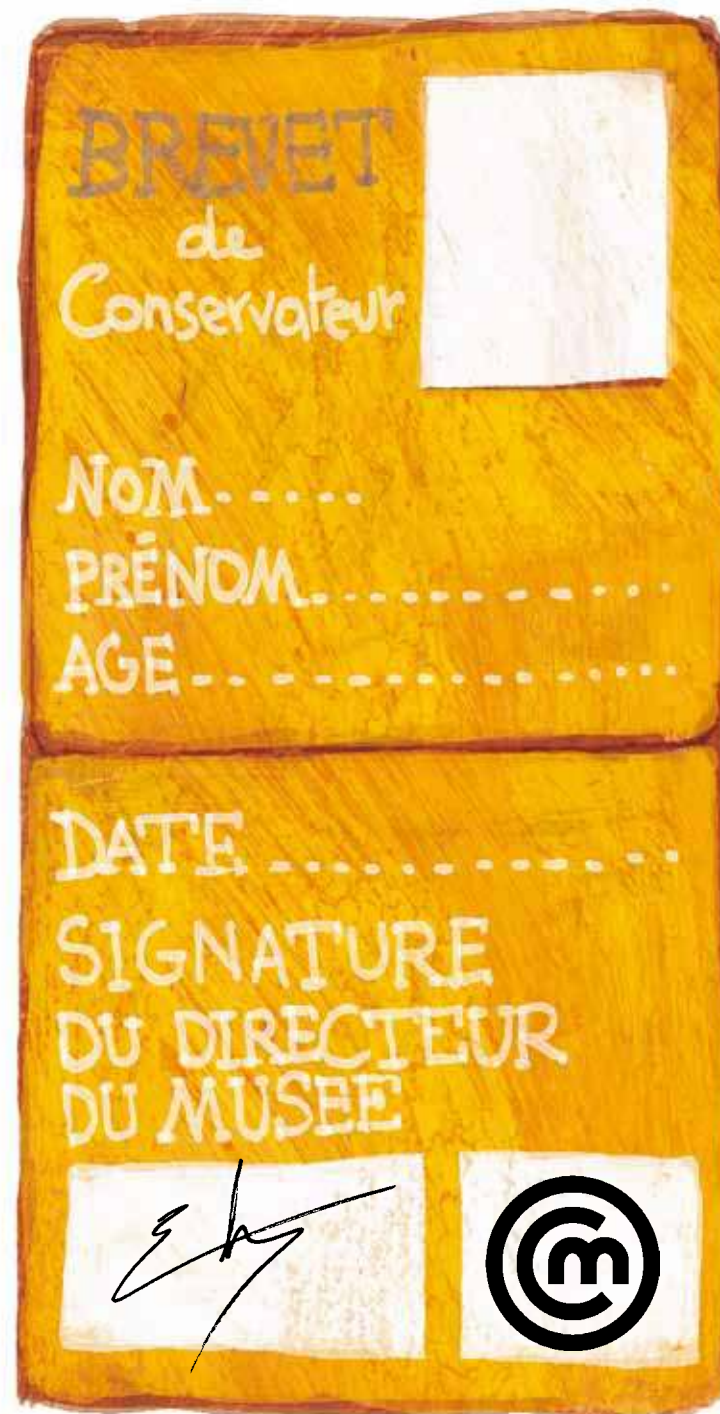 BREVET
de
Conservateur
NOM......
PRÉNOM............
AGE..............
DATE............
SIGNATURE
DU DIRECTEUR
DU MUSEE
cm